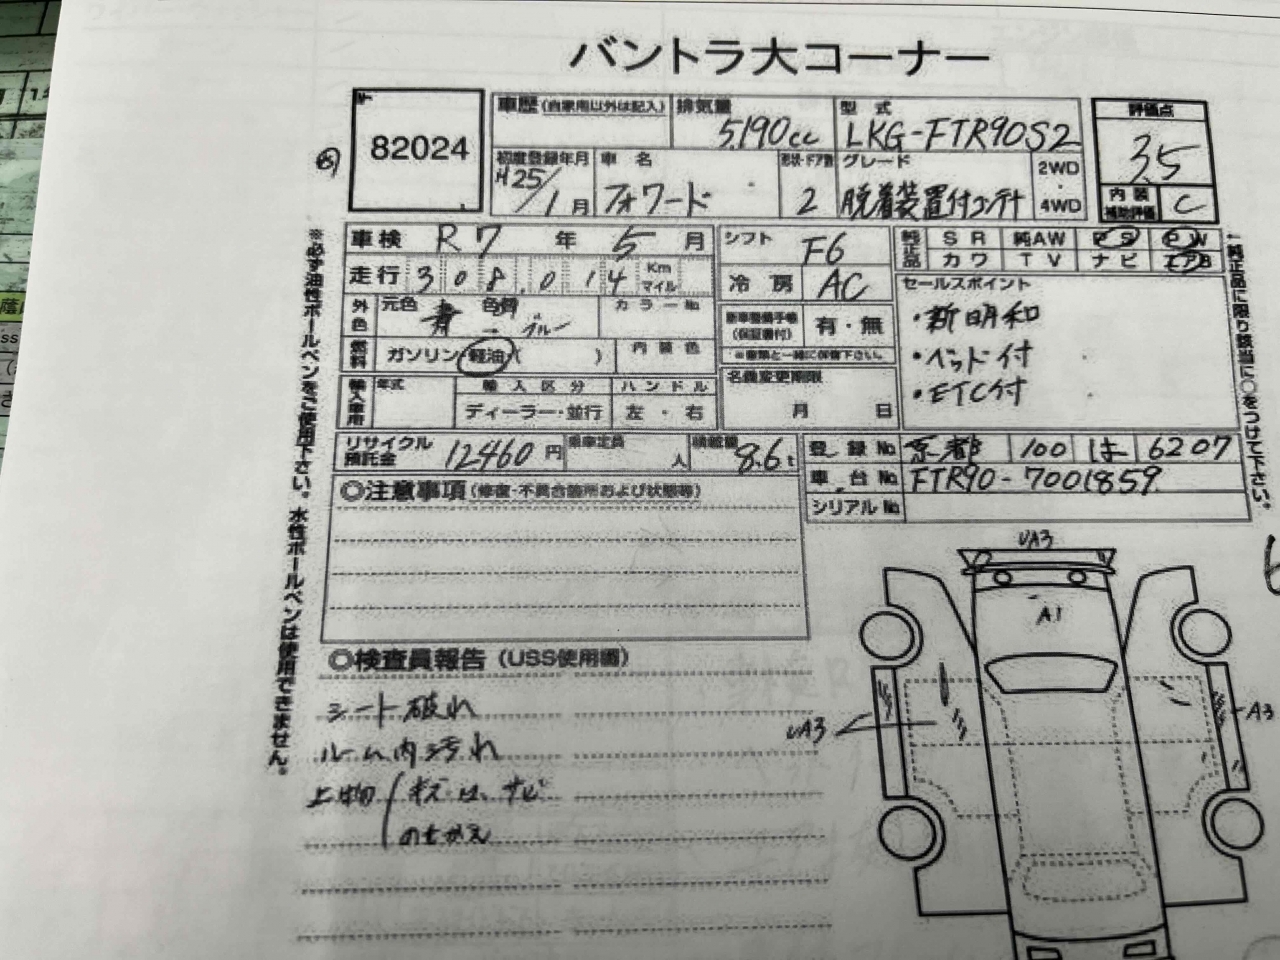 バントラ大コーナー
82024
車歴(自家用以外は記入)
排気量 5,190cc
型式 LKG-FTR90S2
評価点 3.5
初度登録年月 H25/1月
車名 フォワード
形状・ドア数 2
グレード 脱着装置付コンテナ
2WD・4WD
内装補助評価 C
車検 R7年 5月
シフト F6
純正品 SR 純AW PS PW
カワ TV ナビ エアB
走行 308,014 Km マイル
冷房 AC
セールスポイント
・新明和
・ベッド付
・ETC付
外色 元色 青 → 色替 ブルー カラーNo
新車整備手帳(保証書付) 有・無
※書類と一緒に保管下さい。
燃料 ガソリン 軽油 ( ) 内装色
輸入車用 年式 輸入区分 ハンドル
ディーラー・並行 左・右
名義変更期限
月 日
リサイクル預託金 12460円
乗車定員 人
積載量 8.6t
登録No 京都 100 は 6207
車台No FTR90-7001859
シリアルNo
◎注意事項(修復・不具合箇所および状態等)
◎検査員報告(USS使用欄)
シート破れ
ルーム内汚れ
上物
※必ず油性ボールペンをご使用下さい。水性ボールペンは使用できません。
純正品に限り該当に○をつけて下さい。
UA3
A1
UA3
A3